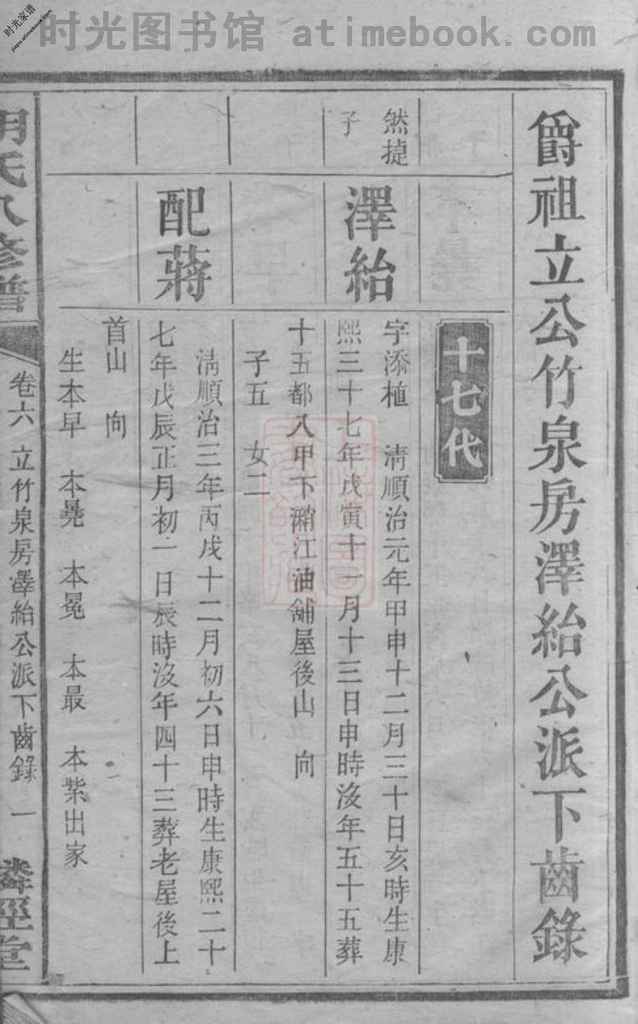 时光图书馆 atimebook.com
时光家谱
爵祖立公竹泉房澤紿公派下齒錄
十七代
然捷
子
澤紿
字添植 清順治元年甲申十二月三十日亥時生康
熙三十七年戊寅十一月十三日申時沒年五十五葬
十五都八甲下瀟江油舖屋後山 向
子五 女二
配蔣
清順治三年丙戌十二月初六日申時生康熙二十
七年戊辰正月初一日辰時沒年四十三葬老屋後上
首山 向
生本早 本晃 本冕 本最 本紫出家
氏八修譜
卷六 立竹泉房澤紿公派下齒錄 一
麟經堂